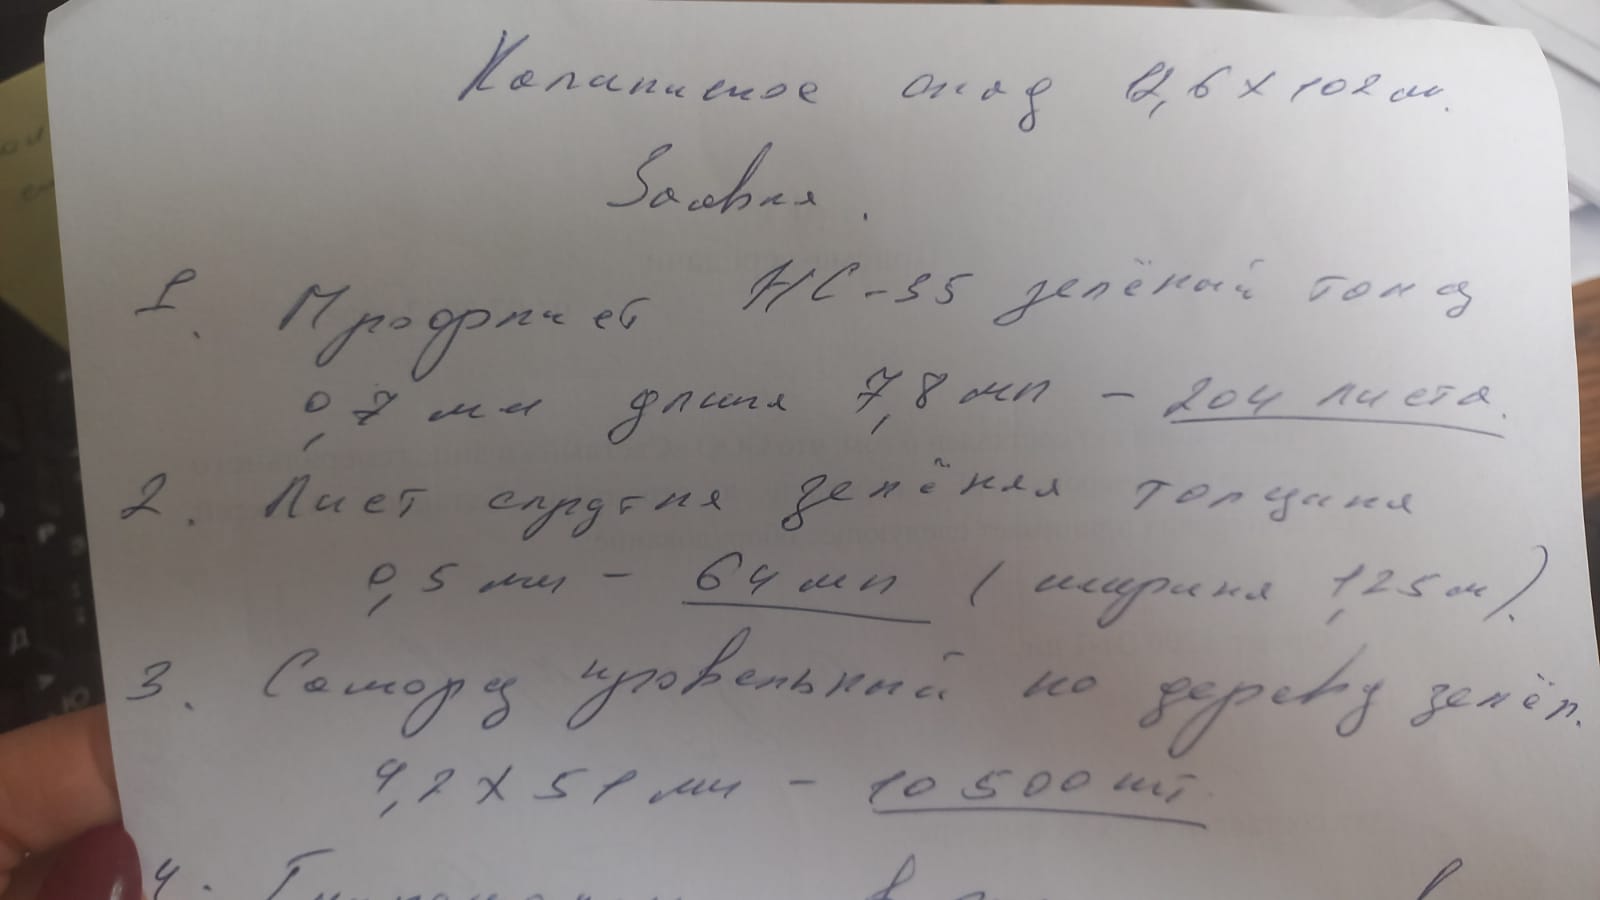 Калининское склад 12,6 х 102 м.
Заявка.
1. Профлист НС-35 зелёный толщ
0,7 мм длина 7,8 мп – 204 листа.
2. Лист зелёная толщина
0,5 мм – 64 мп (ширина 1,25 м).
3. Саморез кровельный по дереву зелён.
4,2 х 51 мм – 10 500 шт.
4.